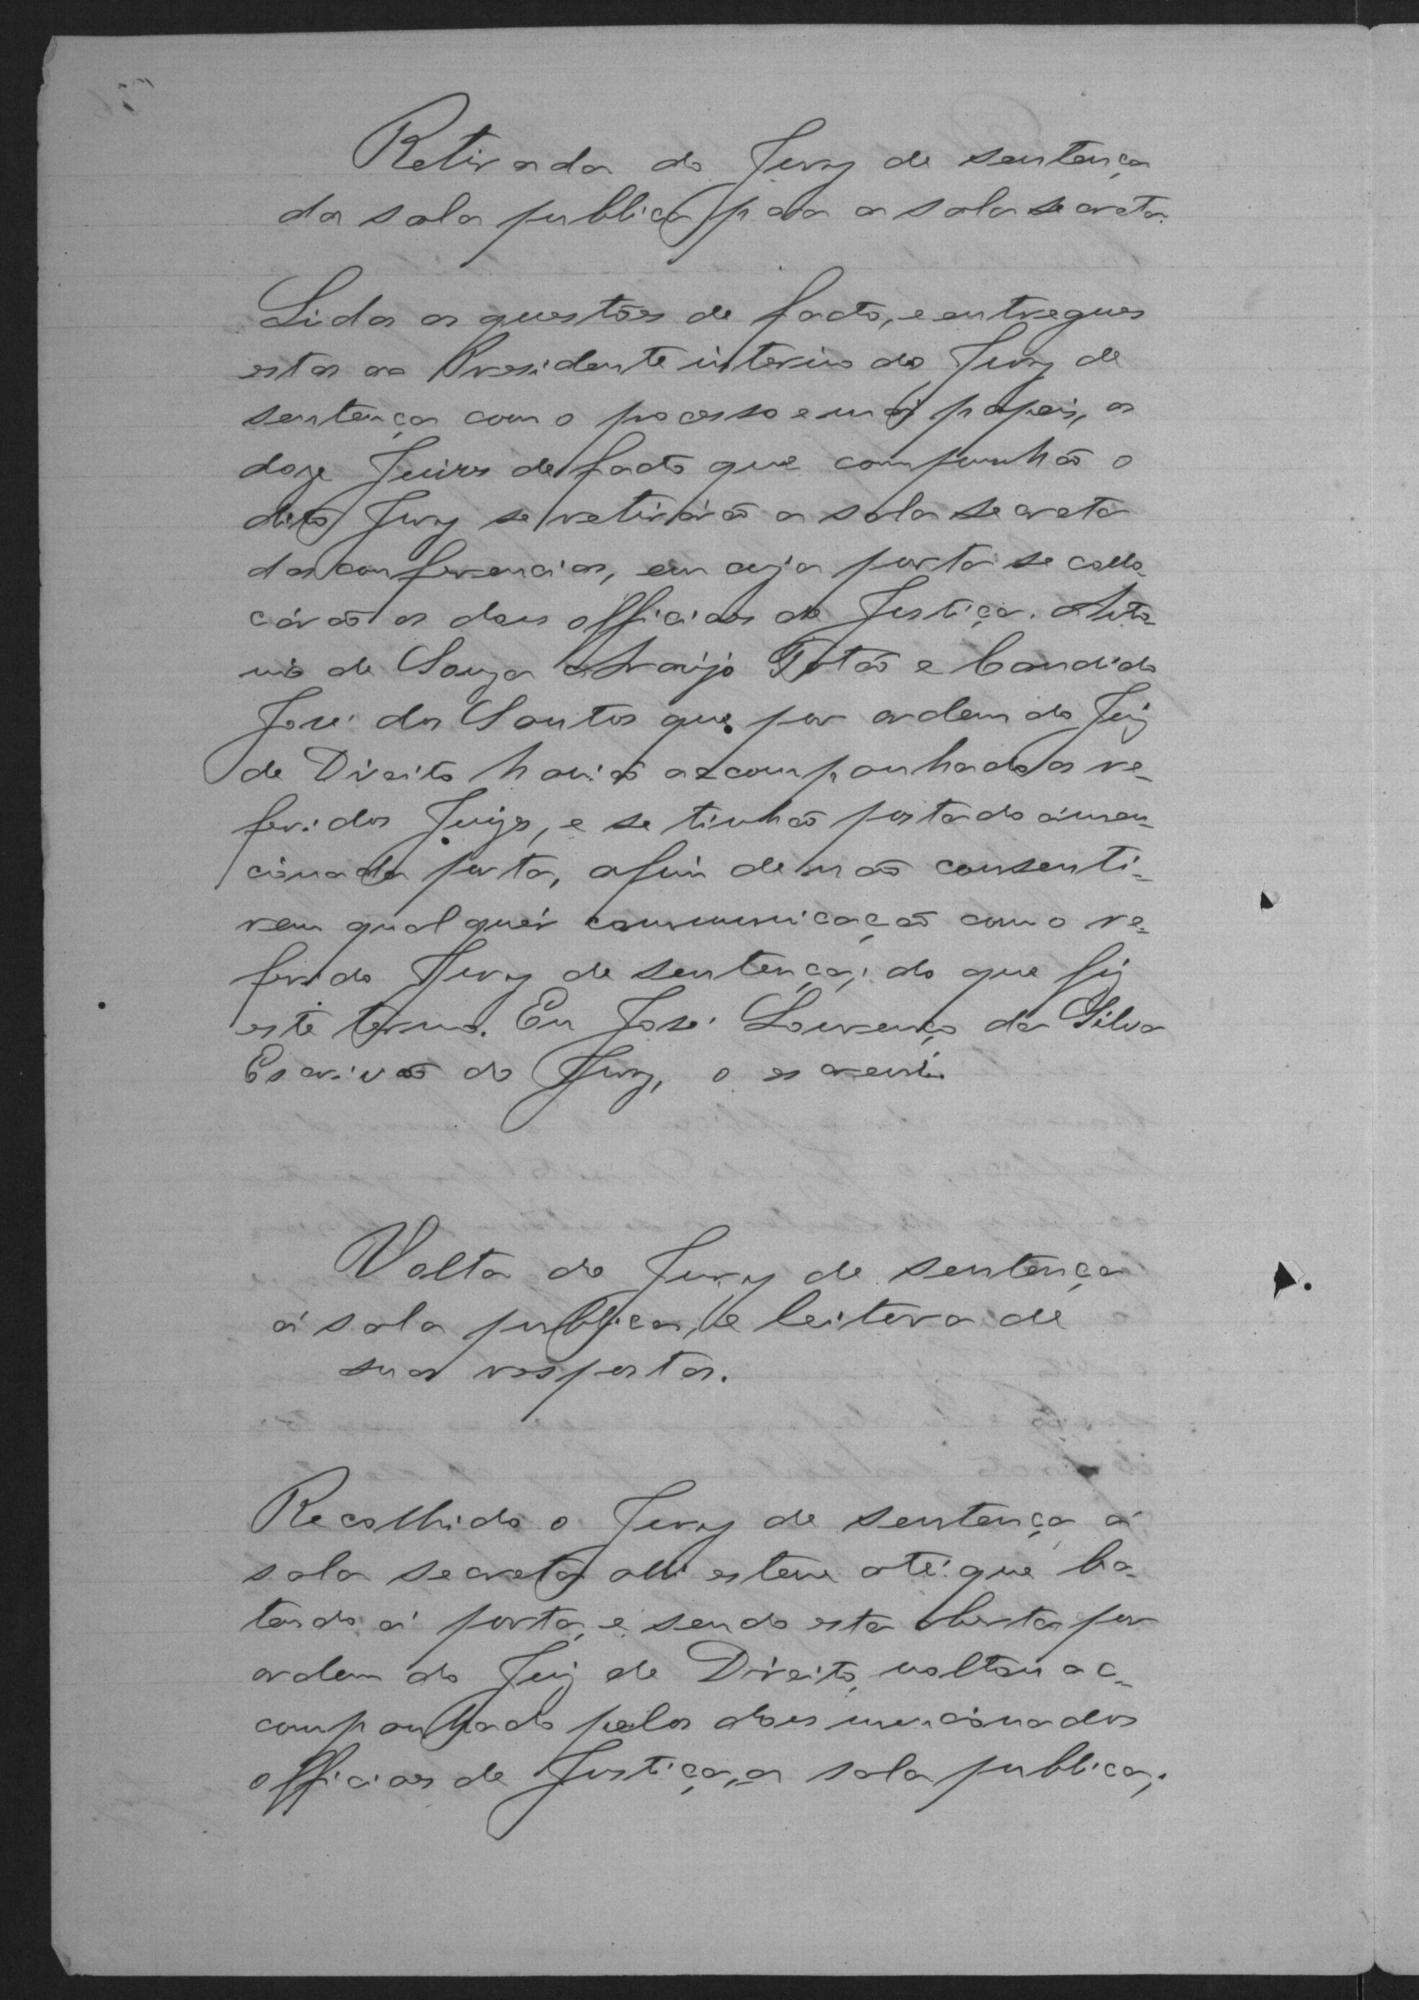 Retirada do Jury de sentença
da sala publica para a sala secreta.
Lidas as questões de facto, e entregues
estas ao Presidente interino do Jury de
sentença com o processo e mais papeis, os
doze Juizes de facto que compunhão o
dito Jury se retirárão a sala secreta
das conferencias, em cuja porta se collo-
cárão os dous officiaes de Justiça. Anto-
nio de Souza Araujo Totão e Candido
José dos Santos que por ordem do Juiz
de Direito havião accompanhado os re-
feridos Juizes, e se tinhão postado á men-
cionada porta, afim de não consenti-
rem qualquér communicação com o re-
ferido Jury de sentença; do que fiz
este termo. Eu José Lourenço da Silva
Escrivão do Jury, o escreví.
Volta do Jury de sentença
á sala publica, e leitura de
suas respostas.
Recolhido o Jury de sentença á
sala secreta alli esteve até que ba-
tendo á porta, e sendo esta aberta por
ordem do Juiz de Direito, voltou ac-
companhado pelos dous mencionados
officiaes de Justiça, a sala publica,